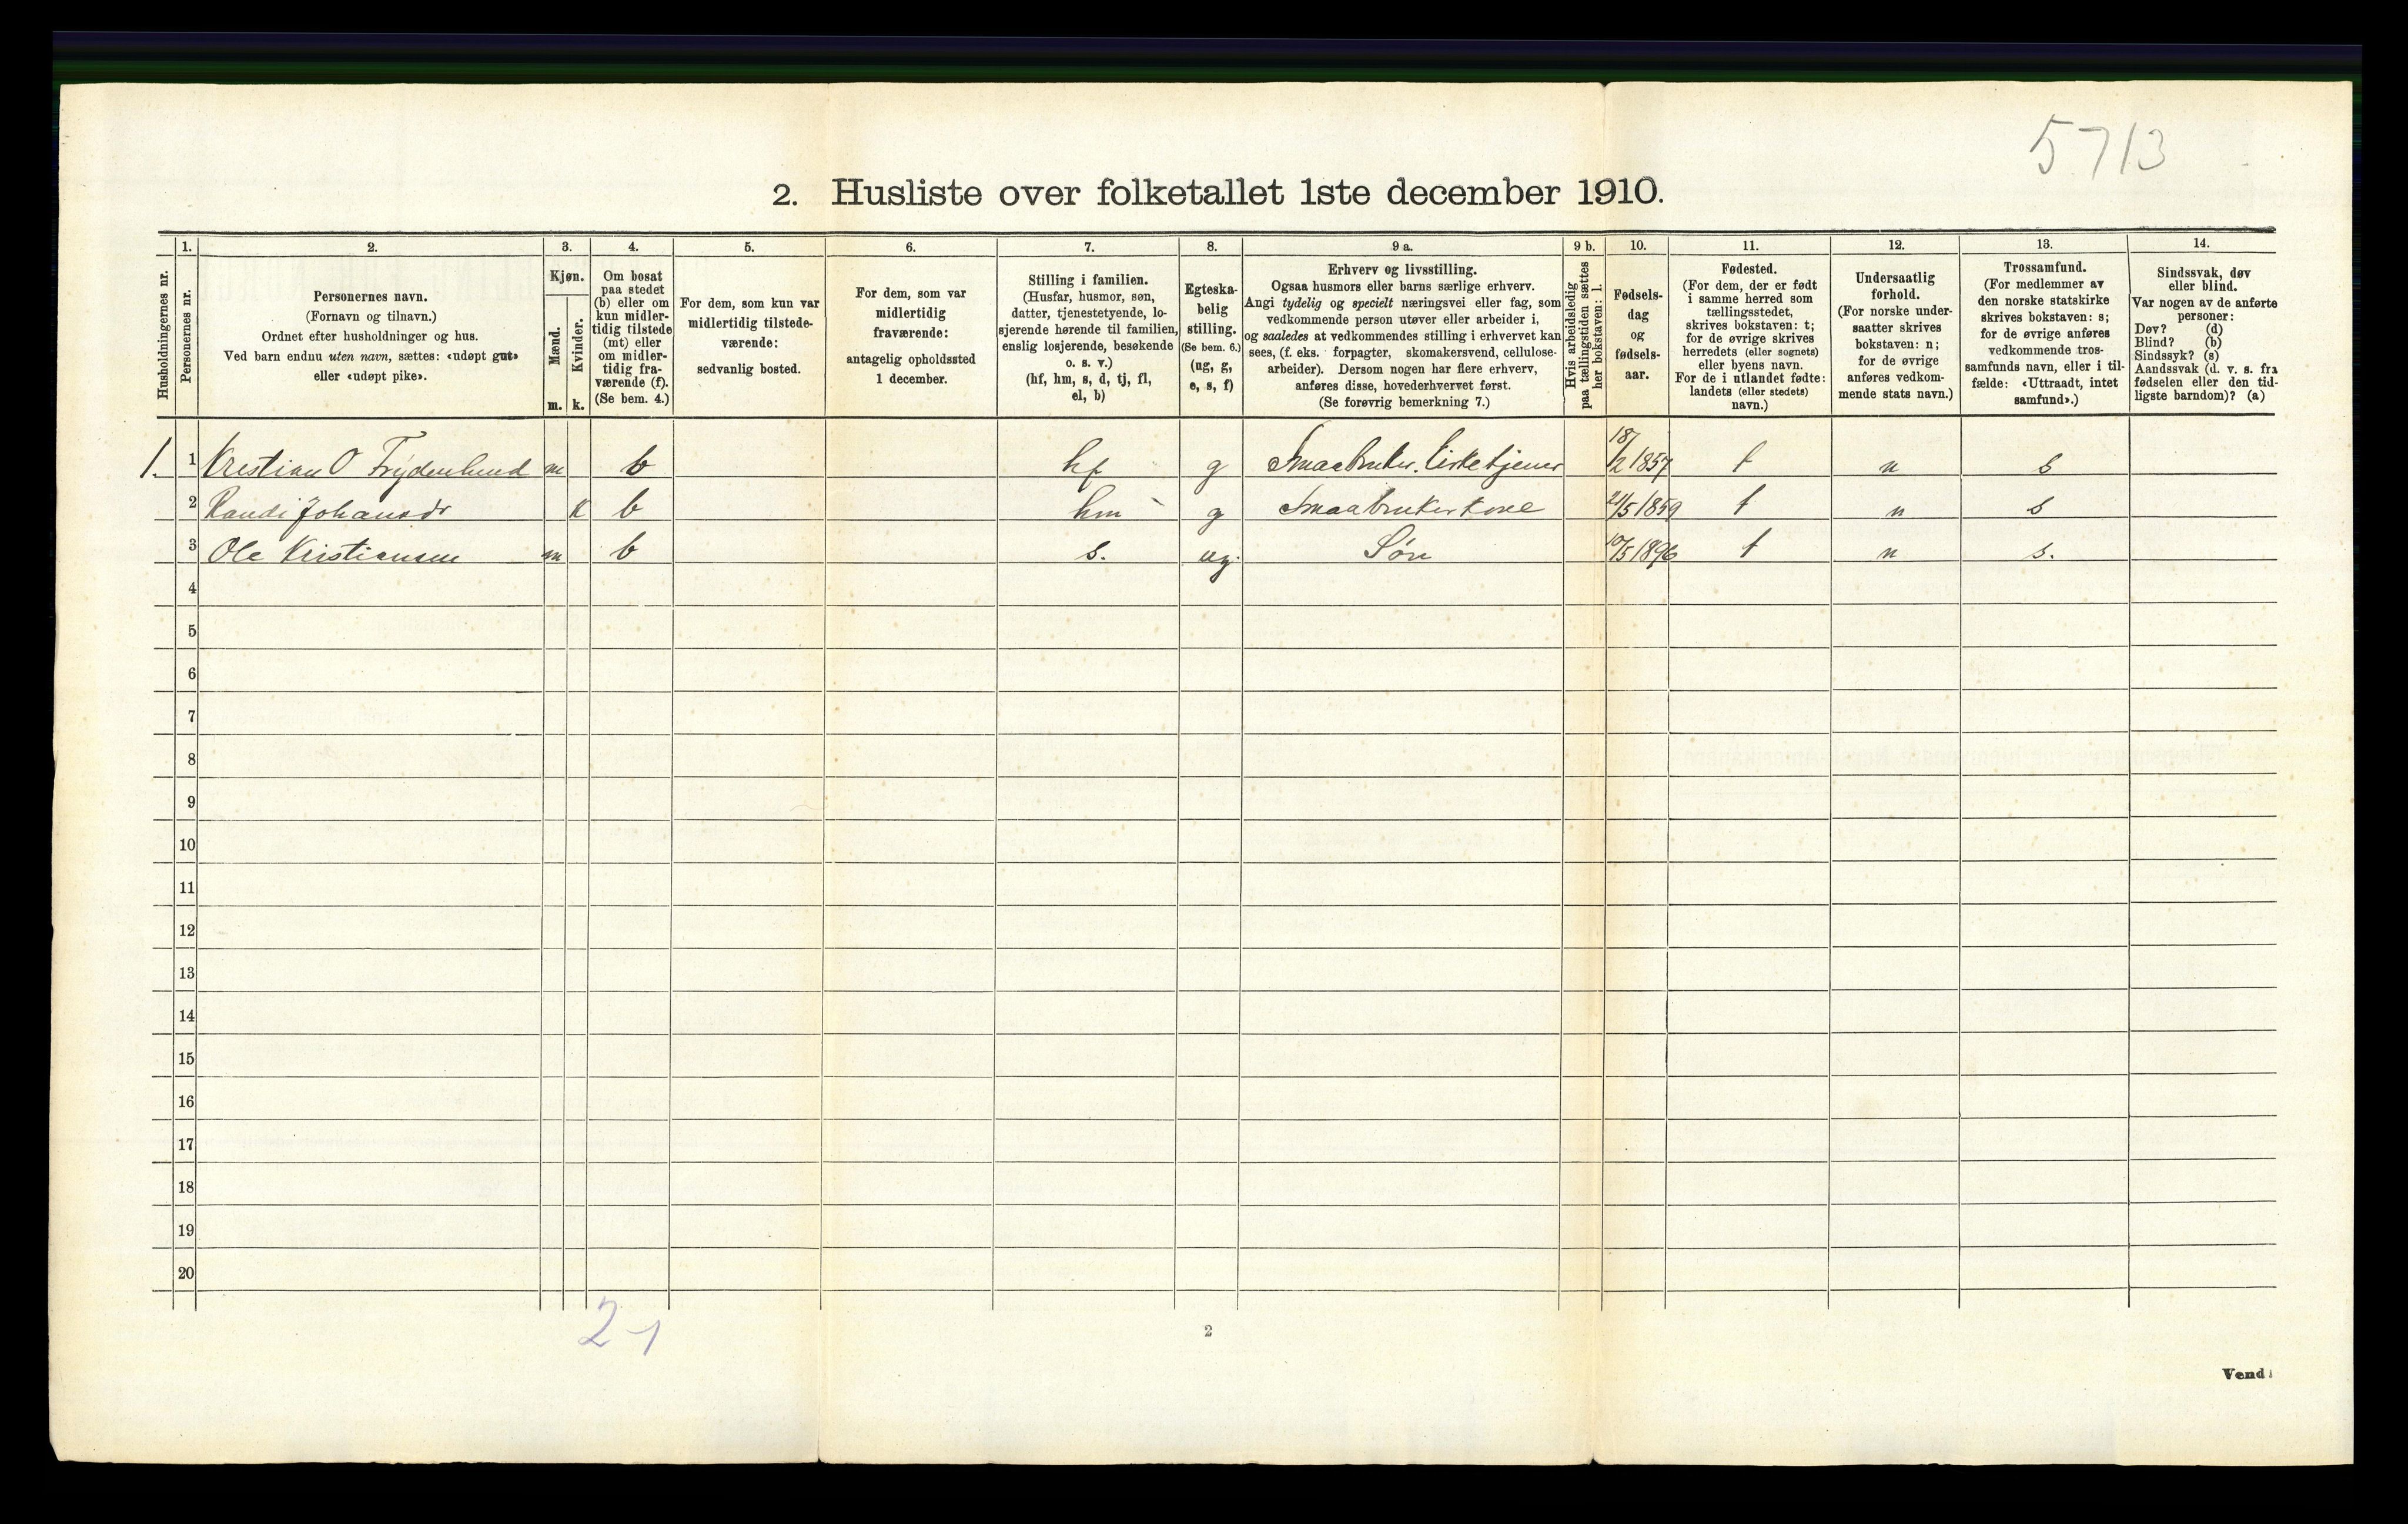 5713
2. Husliste over folketallet 1ste december 1910.
1. 2. 3. 4. 5. 6. 7. 8. 9 a. 9 b. 10. 11. 12. 13. 14.
Husholdningernes nr.
Personernes nr.
Personernes navn.
(Fornavn og tilnavn.)
Ordnet efter husholdninger og hus.
Ved barn endnu uten navn, sættes: «udøpt gut»
eller «udøpt pike».
Kjøn.
Mænd.
Kvinder.
m. k.
Om bosat
paa stedet
(b) eller om
kun midler-
tidig tilstede
(mt) eller
om midler-
tidig fra-
værende (f).
(Se bem. 4.)
For dem, som kun var
midlertidig tilstede-
værende:
sedvanlig bosted.
For dem, som var
midlertidig
fraværende:
antagelig opholdssted
1 december.
Stilling i familien.
(Husfar, husmor, søn,
datter, tjenestetyende, lo-
sjerende hørende til familien,
enslig losjerende, besøkende
o. s. v.)
(hf, hm, s, d, tj, fl,
el, b)
Egteska-
belig
stilling.
(Se bem. 6.)
(ug, g,
e, s, f)
Erhverv og livsstilling.
Ogsaa husmors eller barns særlige erhverv.
Angi tydelig og specielt næringsvei eller fag, som
vedkommende person utøver eller arbeider i,
og saaledes at vedkommendes stilling i erhvervet kan
sees, (f. eks. forpagter, skomakersvend, cellulose-
arbeider). Dersom nogen har flere erhverv,
anføres disse, hovederhvervet først.
(Se forøvrig bemerkning 7.)
Hvis arbeidsledig
paa tællingstiden sættes
her bokstaven: l.
Fødsels-
dag
og
fødsels-
aar.
Fødested.
(For dem, der er født
i samme herred som
tællingsstedet,
skrives bokstaven: t;
for de øvrige skrives
herredets (eller sognets)
eller byens navn.
For de i utlandet fødte:
landets (eller stedets)
navn.)
Undersaatlig
forhold.
(For norske under-
saatter skrives
bokstaven: n;
for de øvrige
anføres vedkom-
mende stats navn.)
Trossamfund.
(For medlemmer av
den norske statskirke
skrives bokstaven: s;
for de øvrige anføres
vedkommende tros-
samfunds navn, eller i til-
fælde: «Uttraadt, intet
samfund».)
Sindssvak, døv
eller blind.
Var nogen av de anførte
personer:
Døv? (d)
Blind? (b)
Sindssyk? (s)
Aandssvak (d. v. s. fra
fødselen eller den tid-
ligste barndom)? (a)
1. 1 Kristian O Frydenlund m b hf g Smaabruker. Kirketjener 18/2 1857 t n s
2 Randi Johansdr k b hm g Smaabrukerkone 21/5 1859 t n s
3 Ole Kristiansen m b s. ug. Søn 10/5 1896 t n s.
4
5
6
7
8
9
10
11
12
13
14
15
16
17
18
19
20
2-1
2
Vend!